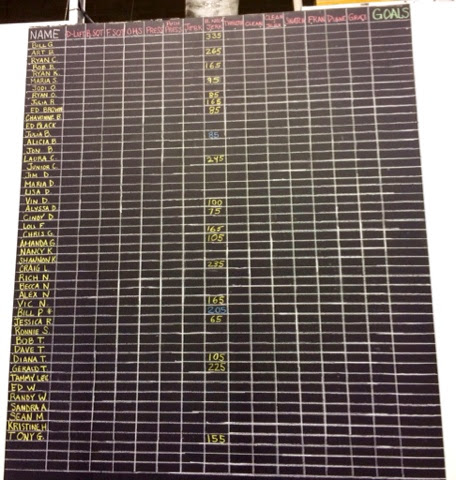 NAME D-LIFT B.SQT F.SQT O.H.S. PRESS PUSH PRESS JERK THRUSTER CLEAN CLEAN & JERK SNATCH FRAN DIANE GRACE GOALS
BILL G. 335
ART B. 265
RYAN C.
ROB R. 165
RYAN K.
MARIA S. 95
JODI O.
RYAN O. 85
JULIA R. 165
ED BROWN 85
CHAYENNE B
ED BLACK
JULIA B. 85
ALICIA B
JON B.
LAURA C. 245
JUNIOR C.
JIM D
MARIA D.
LISA D.
VIN D. 100
ALYSSA D. 75
CINDY D.
LOU F. 165
CHRIS G. 105
AMANDA G
NANCY K.
SHANNON K
CRAIG L 235
RICH N
BECCA N
ALEX N
VIC N. 165
BILL P # 205
JESSICA R. 65
RONNIE S.
BOB T.
DAVE T.
DIANA T. 105
GERALD T. 225
TAMMY
ED W.
RANDY W.
SANDRA A.
SEAN M
KRISTINE H.
TONY G. 155